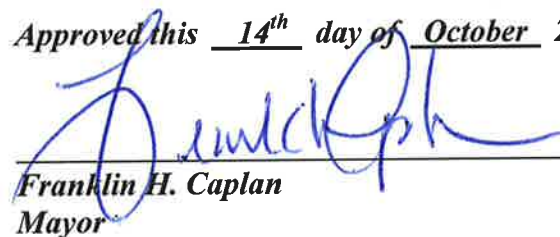 Approved this 14th day of October 2
Franklin H. Caplan
Mayor